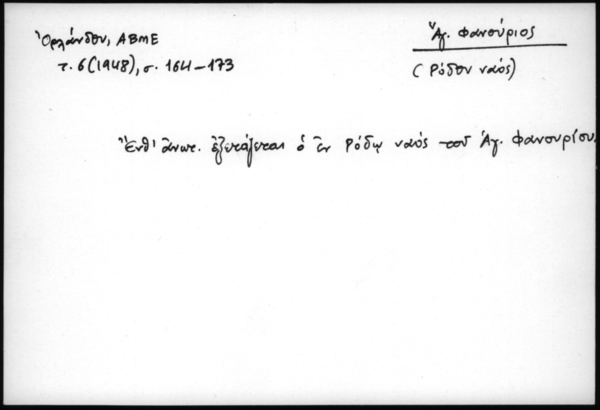 Ὀρλάνδου, ΑΒΜΕ
τ. 6 (1948), σ. 164–173
Ἅγ. Φανούριος
(Ρόδου ναός)
Ἔνθ' ἀνωτ. ἐξετάζεται ὁ ἐν Ρόδῳ ναός τοῦ Ἁγ. Φανουρίου.